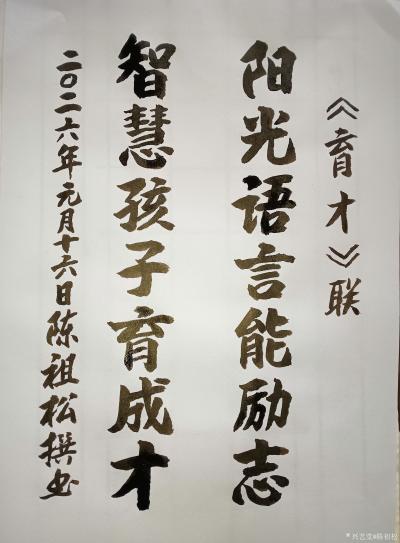 《育才》联
阳光语言能励志
智慧孩子育成才
二〇二六年元月十六日陈祖松撰书
兴艺堂@陈祖松